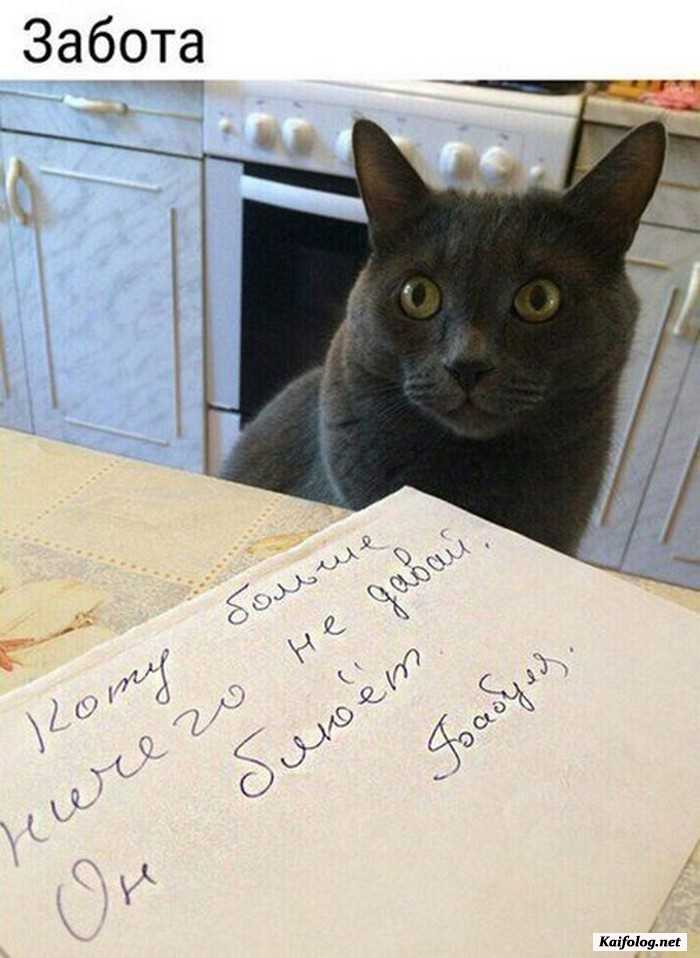 Забота
Кому больше
ничего не давай.
Он блюёт.
Бабуля.
Kaifolog.net